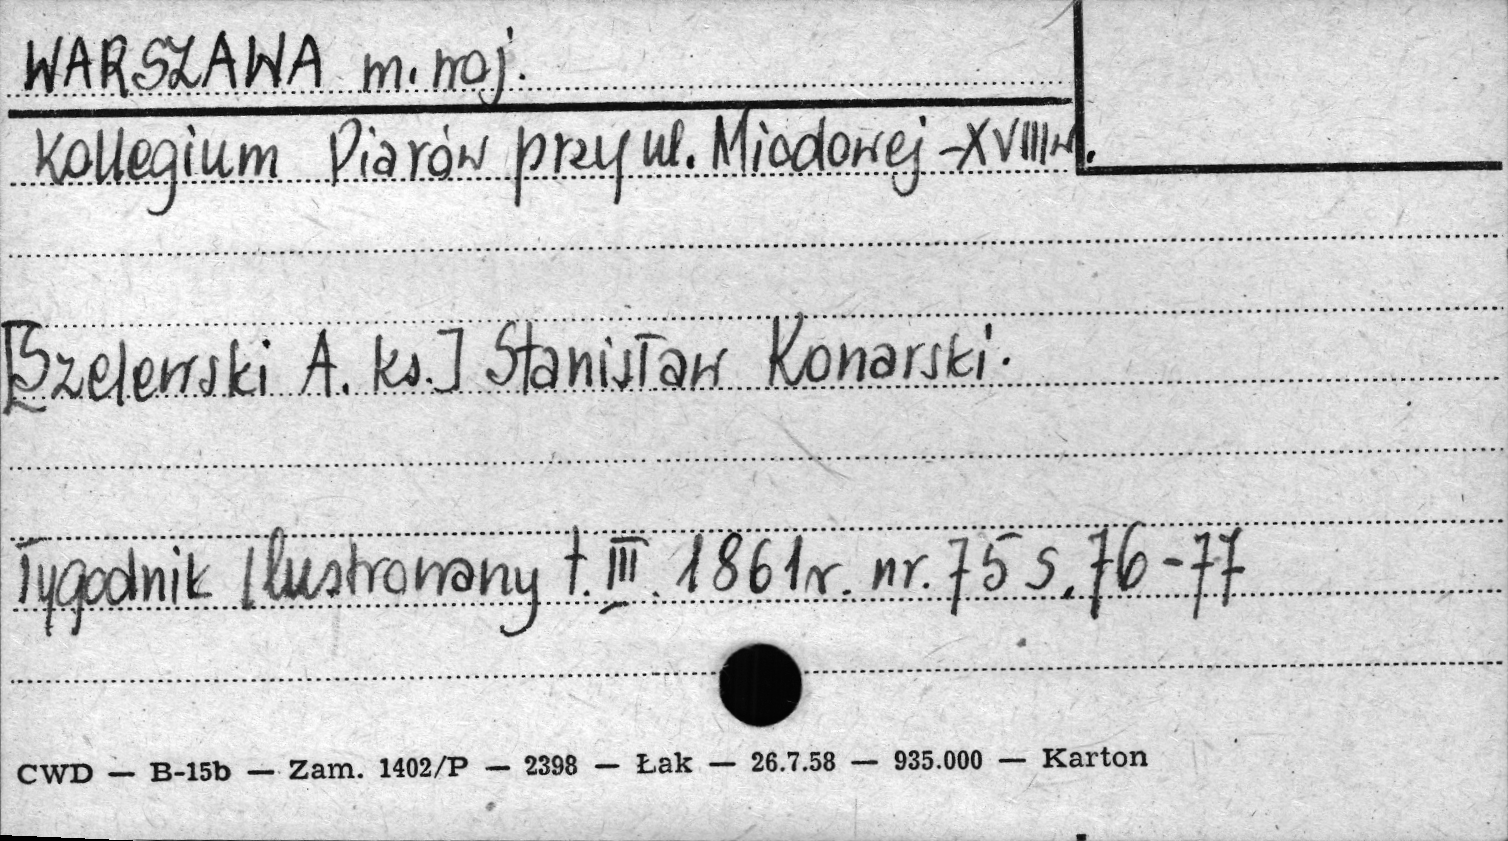 WARSZAWA m. woj.
Kollegium Piarów przy ul. Miodowej - XVIII w.
[Szelewski A. ks.] Stanisław Konarski.
Tygodnik Ilustrowany t. III. 1861 r. nr. 75 s. 76-77
CWD — B-15b — Zam. 1402/P — 2398 — Łak — 26.7.58 — 935.000 — Karton